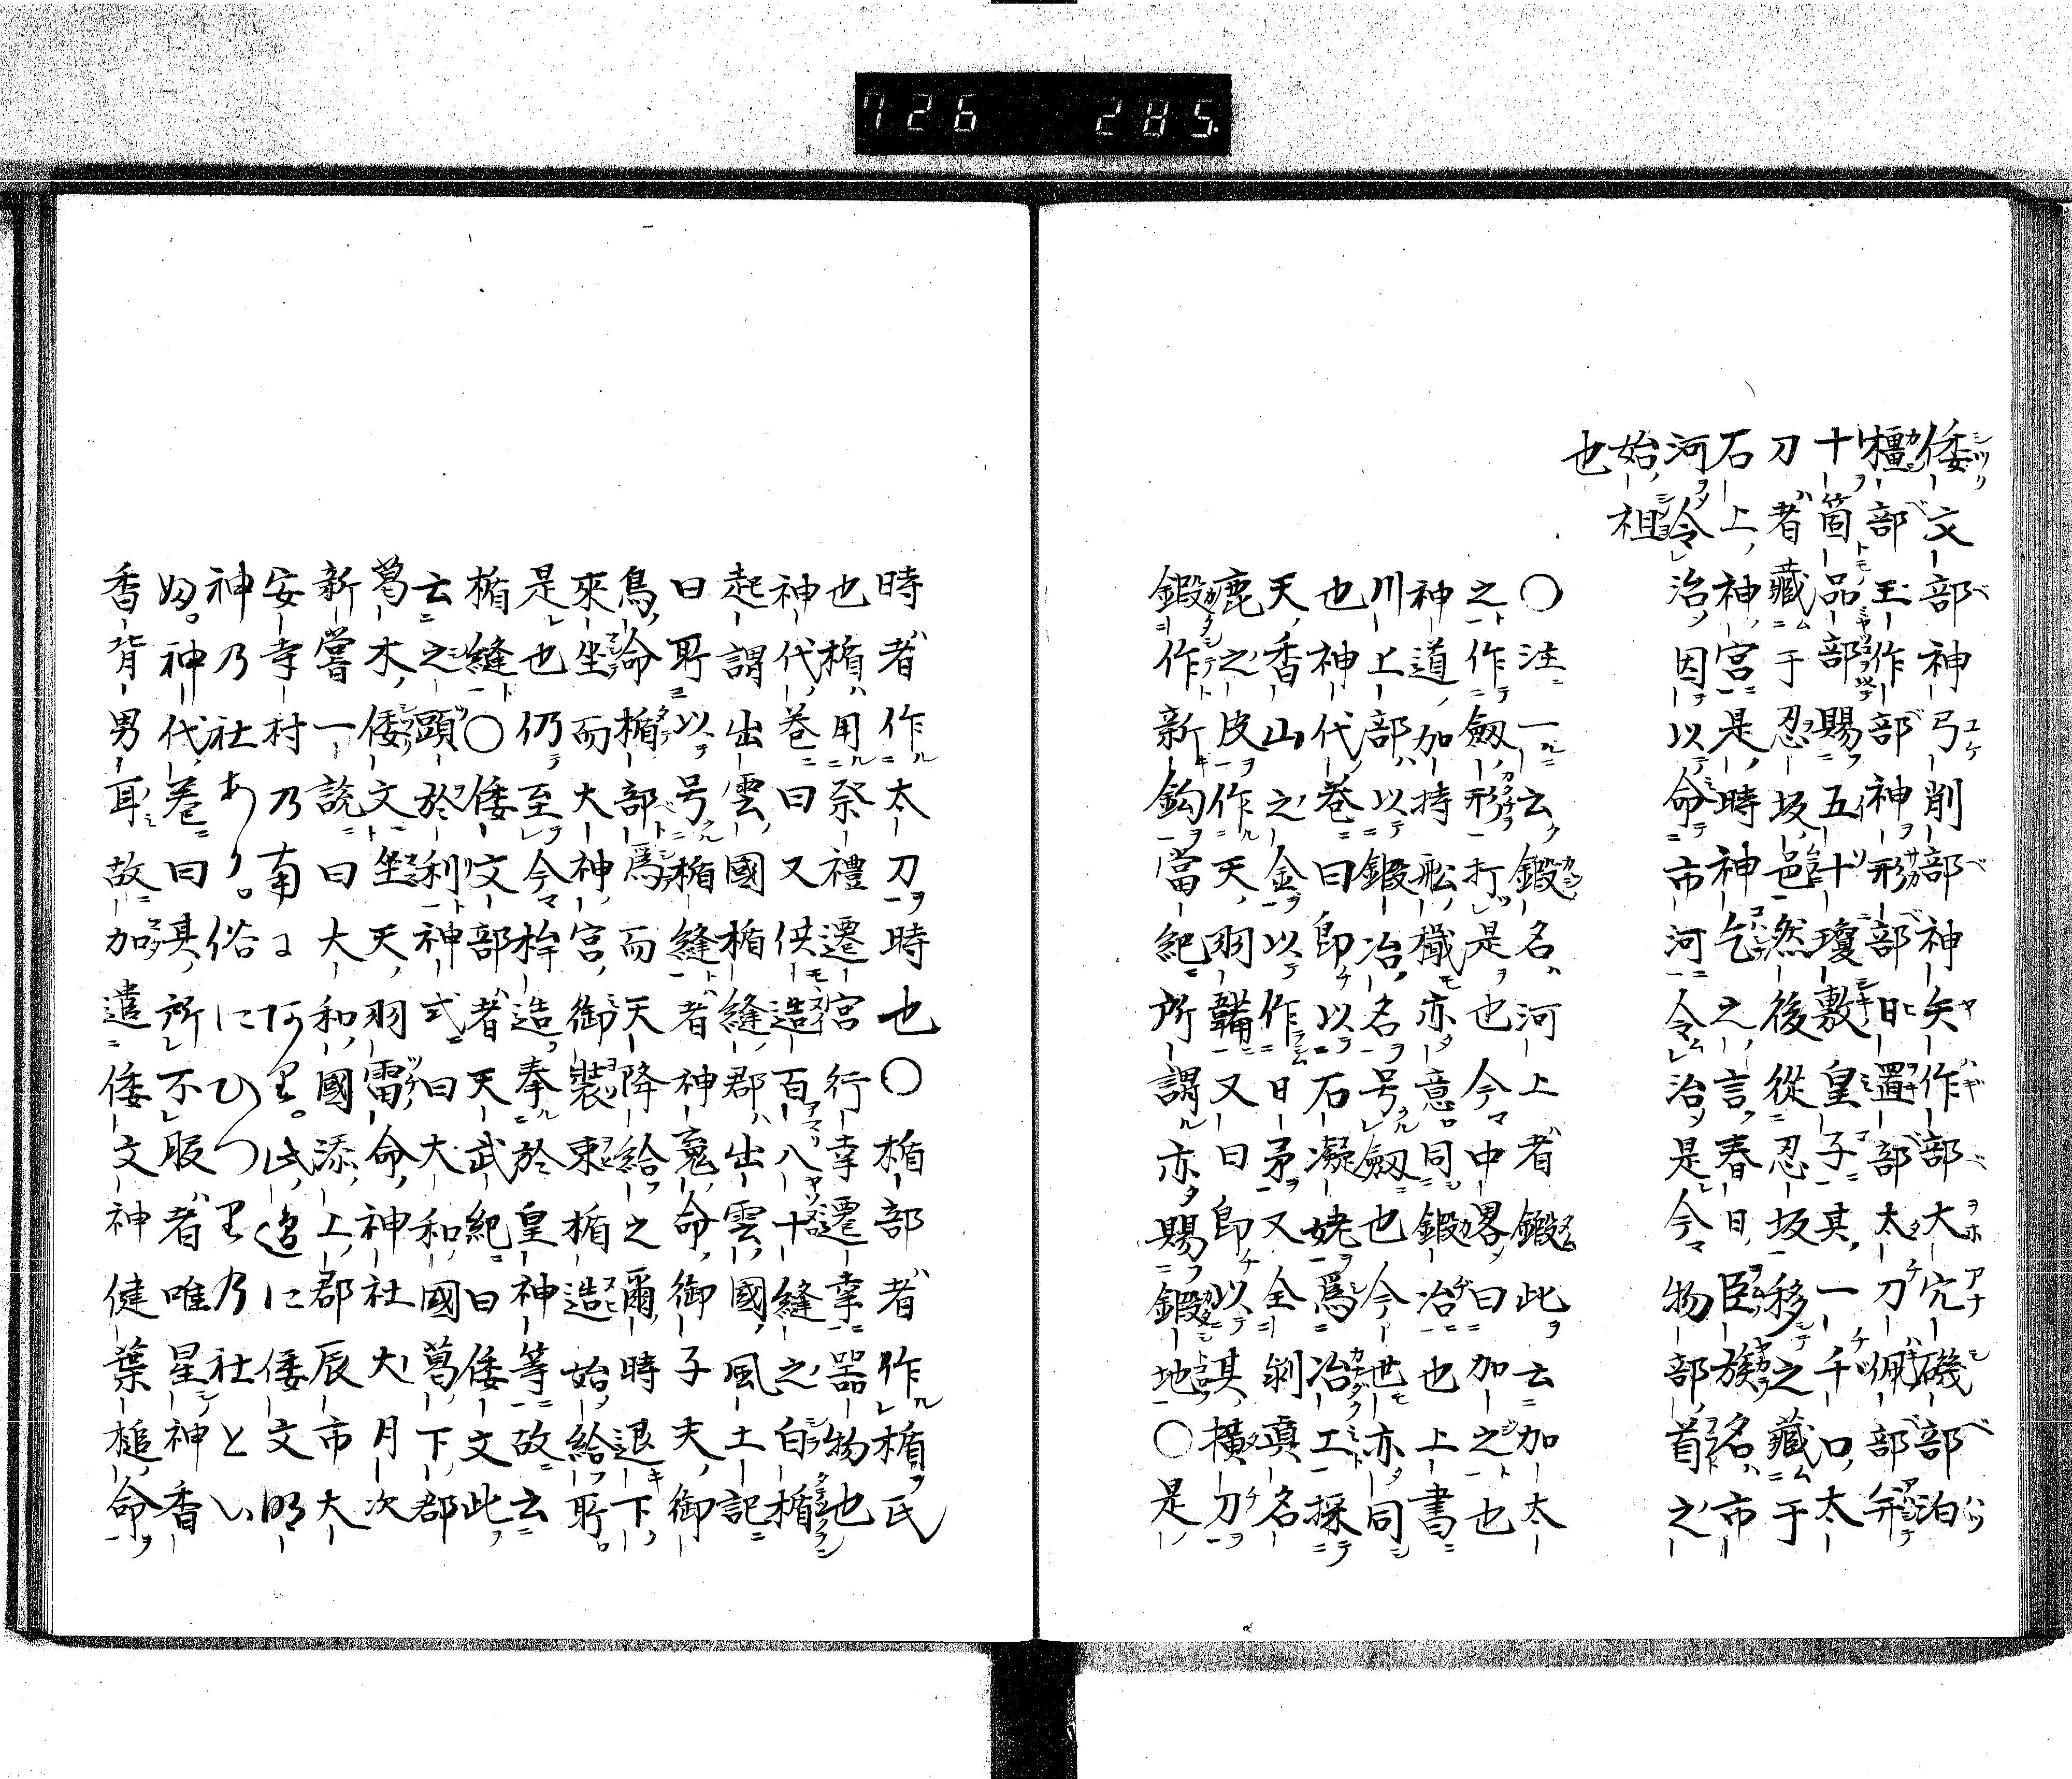 726 285
倭文部神弓削部神矢作部大穴磯部泊
橿部玉作部神形部日置部太刀佩部并
十箇品部賜五十瓊敷皇子其一千口太
刀者藏于忍坂邑然後從忍坂移之藏于
石上神宮是時神乞之言春日臣族名市
河令治因以命市河令治是今物部首之
始祖
也
○注一云鍛名河上者鍛此云加太
之作劔形打是也今中畧曰加之也
神道加持舩檝亦意同鍛冶也上書
川上部以鍛冶名号劔也今世亦同
也神代巻曰即以石凝姥爲冶工採
天香山之金以作日矛又全剝真名
鹿之皮作天羽韛又曰即以其横刀
鍛作新鈎當紀所謂亦賜鍛地○是
時者作太刀時也○楯部者作楯氏
也楯用祭禮遷宮行幸遷幸器物也
神代巻曰又供造百八十縫之白楯
起謂出雲國楯縫郡出雲國風土記
曰所以号楯縫者神䰟命御子天御
鳥命楯部爲而天降給之爾時退下
來坐而大神宮御裝束楯造始給所
是也仍至今桙造奉於皇神等故云
楯縫○倭文部者天武紀曰倭文此
云之頭於利神式曰大和國葛下郡
葛木倭文坐天羽雷命神社大月次
新嘗一説曰大和國添上郡辰市大
安寺村乃南にあり此邉に倭文明
神乃社あり俗にひつり乃社とい
ふ神代巻曰其所不服者唯星神香
香背男耳故加遣倭文神健葉槌命